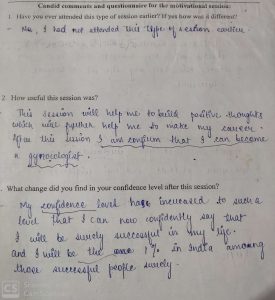 Candid comments and questionnaire for the motivational session:
1. Have you ever attended this type of session earlier? If yes how was it different?
- No, I had not attended this type of session earlier.
2. How useful this session was?
- This session will help me to build positive thoughts
which will further help me to make my career.
After this session I am confirm that I can become
a gynocologist.
. What change did you find in your confidence level after this session?
- My confidence level has increased to such a
level that I can now confidently say that
I will be surely successful in my life.
and I will be the one 1% in India among
those successful people surely.
CS